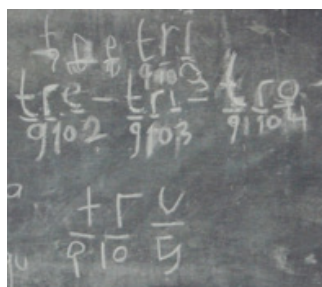 tri
9103
tre - tri - tro
9102 9103 9104
tru
9 10 5